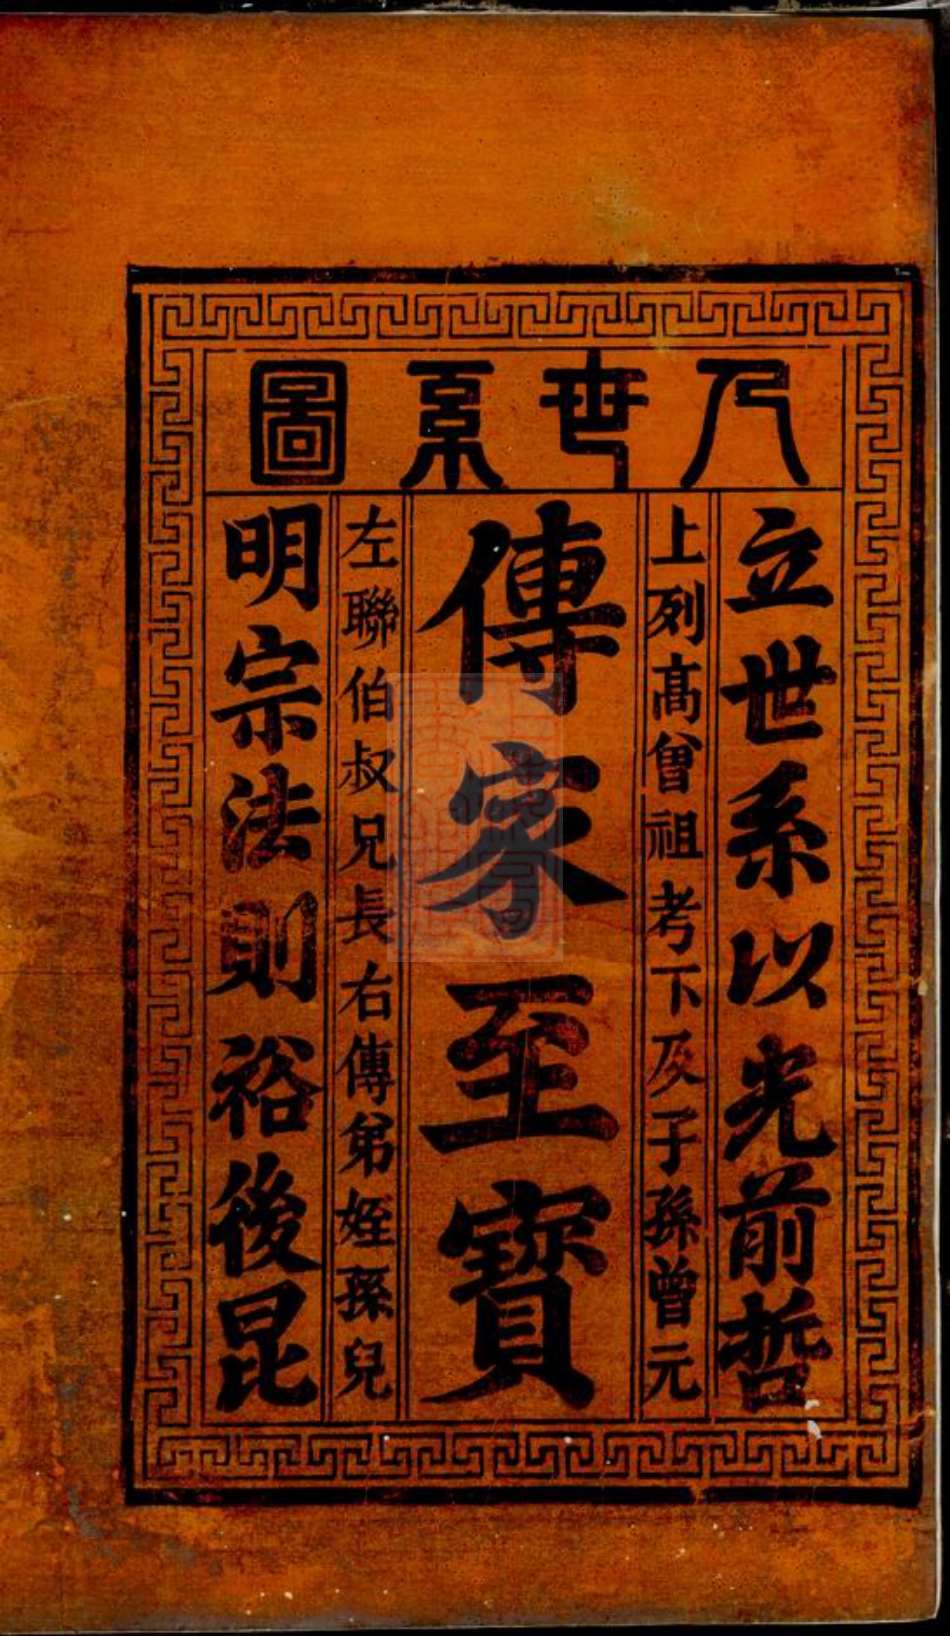 世系圖
立世系以光前哲
上列高曾祖考下及子孫曾元
傳家至寶
左聯伯叔兄長右傳弟姪孫兒
明宗法則裕後昆